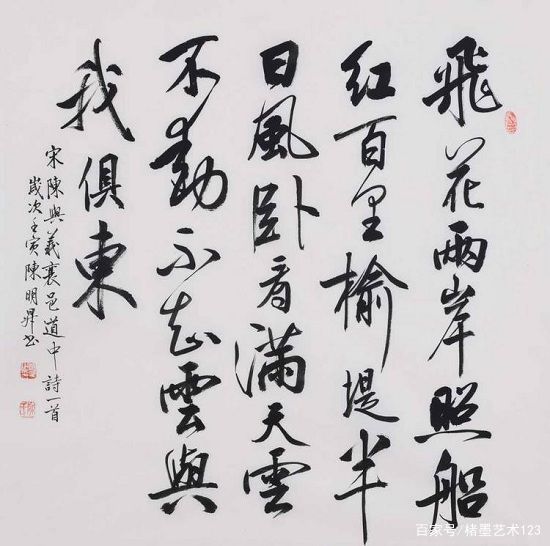 飛花兩岸照船
紅百里榆堤半
日風卧看滿天雲
不動不知雲與
我俱東
宋陳與義襄邑道中詩一首
歲次壬寅陳明昇书
百家号/楮墨艺术123